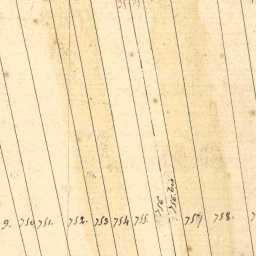 9. 750 751. 752. 753 754 755. 756 756 bis 757 758.